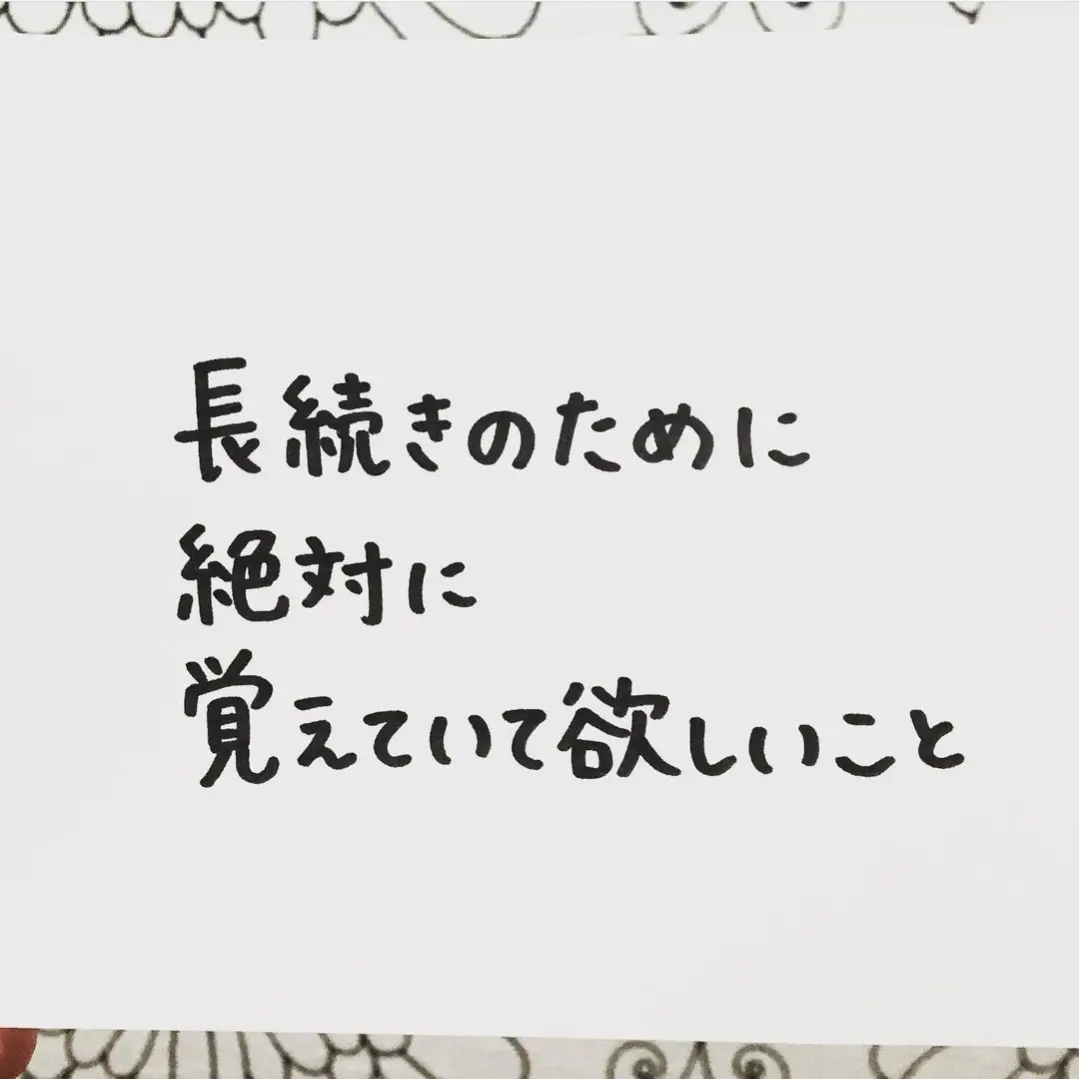 長続きのために
絶対に
覚えていて欲しいこと